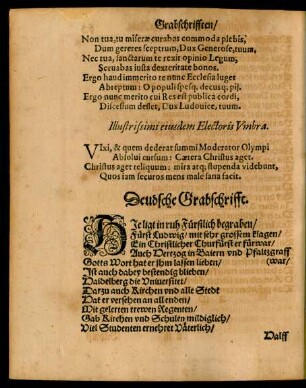 Grabschrifften/
Non tua, tu miseræ curabas commoda plebis,
Dum gereres sceptrum, Dux Generose, tuum,
Nec tua, sanctarum te rexit opinio Legum,
Seruabas iusta dexteritate bonos.
Ergo haud immerito te nunc Ecclesia luget
Abreptum: O populi spesq, decusq, pij.
Ergo nunc merito cui Res est publica cordi,
Discessum deflet, Dux Ludouice, tuum.
Illustrissimi eiusdem Electoris Vmbra.
VIxi, & quem dederat summi Moderator Olympi
Absolui cursum: Cætera Christus aget.
Christus aget reliquum: mira atq; stupenda videbunt,
Quos iam securos mens malè sana facit.
Deudsche Grabschrifft.
HIe ligt in ruh Fürstlich begraben/
Fürst Ludwig/ mit sehr grossem klagen/
Ein Christlicher Churfürst er fürwar/
Auch Hertzog in Baiern vnd Pfaltzgraff
(war/
Gotts Wort hat er ihm lassen lieben/
Ist auch dabey bestendig blieben/
Haidelberg die Vniuersitet/
Darzu auch Kirchen vnd alle Stedt
Hat er versehen an all enden/
Mit gelerten trewen Regenten/
Gab Kirchen vnd Schulen mildiglich/
Viel Studenten ernehret Väterlich/
Halff